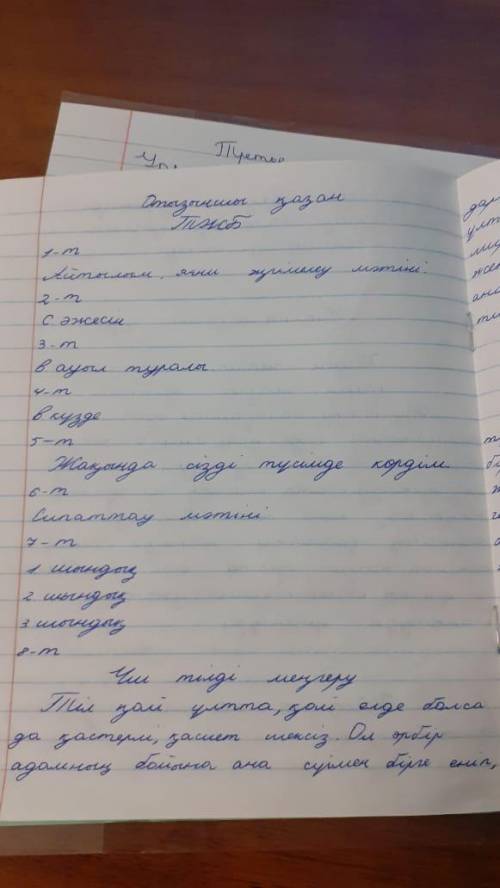 Отызыншы қазан
ТЖБ
1-т
Айтылым, яғни әңгімелеу мәтіні.
2-т
С әжесін
3-т
В ауыл туралы
4-т
В күзде
5-т
Жақында сізді түсімде көрдім
6-т
Сипаттау мәтіні
7-т
1 шындық
2 шындық
3 шындық
8-т
Үш тілді меңгеру
Тіл қай ұлтта, қай елде болса
да қастерлі, қасиет шексіз. Ол әрбір
адамның бойына ана сүтімен бірге еніп,